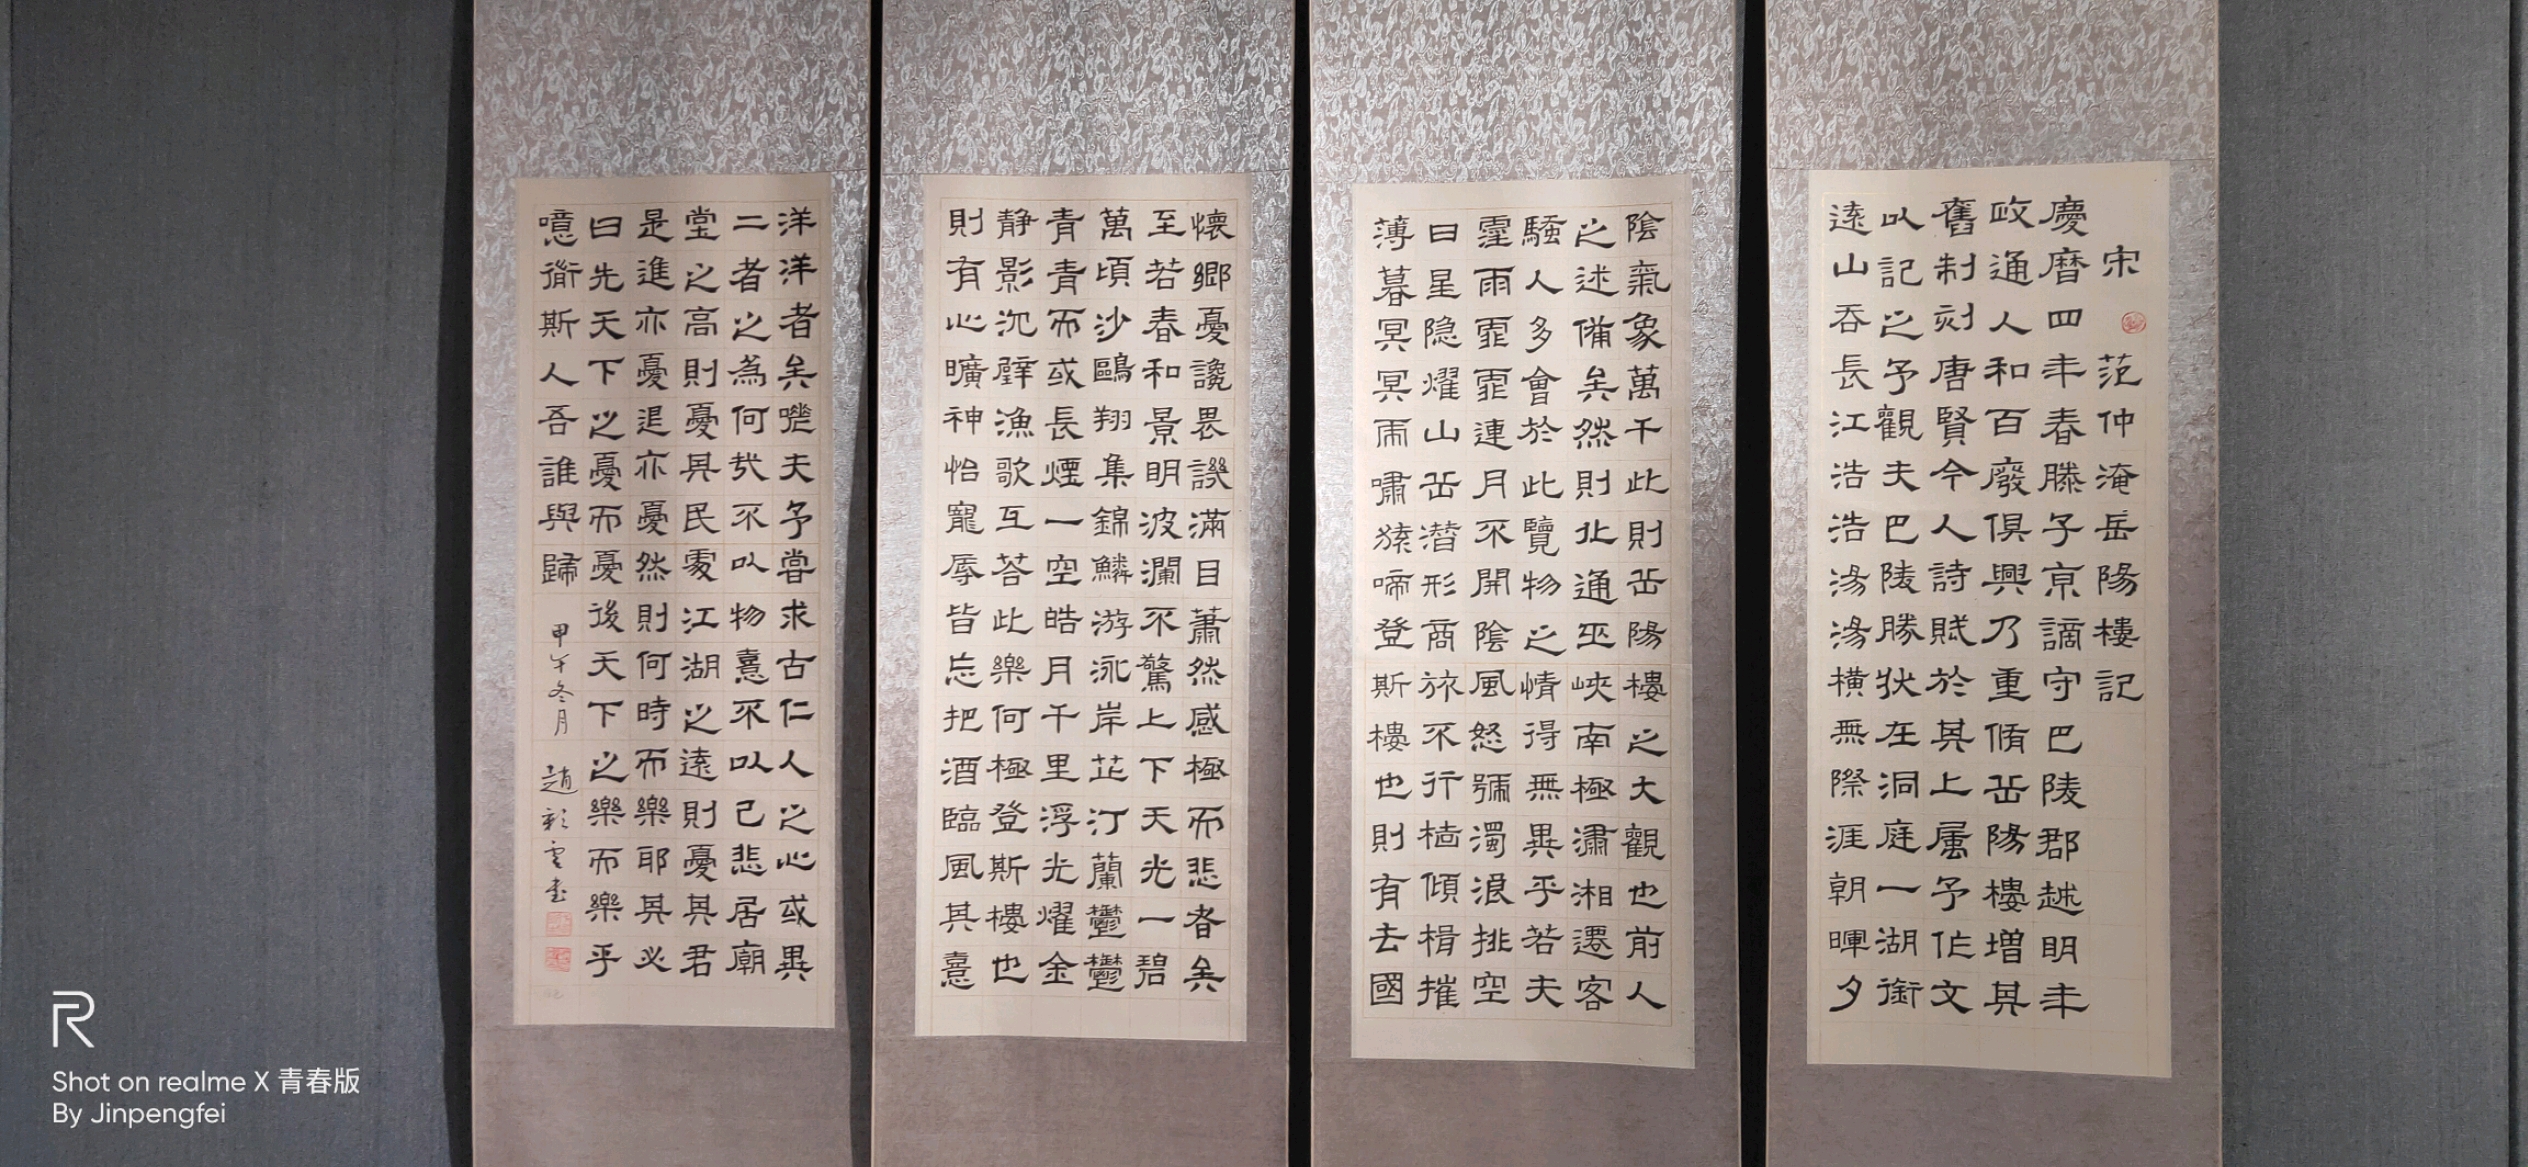 宋 范仲淹岳陽樓記
慶曆四年春滕子京謫守巴陵郡越明年
政通人和百廢俱興乃重脩岳陽樓增其
舊制刻唐賢今人詩賦於其上属予作文
以記之予觀夫巴陵勝狀在洞庭一湖銜
遠山吞長江浩浩湯湯橫無際涯朝暉夕
陰氣象萬千此則岳陽樓之大觀也前人
之述備矣然則北通巫峽南極瀟湘遷客
騷人多會於此覽物之情得無異乎若夫
霪雨霏霏連月不開陰風怒號濁浪排空
日星隐燿山岳潜形商旅不行檣傾楫摧
薄暮冥冥乕嘯猿啼登斯樓也則有去國
懷鄉憂讒畏譏滿目蕭然感極而悲者矣
至若春和景明波瀾不驚上下天光一碧
萬頃沙鷗翔集錦鱗游泳岸芷汀蘭鬱鬱
青青而或長煙一空皓月千里浮光燿金
静影沉璧漁歌互荅此樂何極登斯樓也
則有心曠神怡寵辱皆忘把酒臨風其憙
洋洋者矣嗟夫予嘗求古仁人之心或異
二者之為何哉不以物憙不以己悲居廟
堂之高則憂其民處江湖之遠則憂其君
是進亦憂退亦憂然則何時而樂耶其必
曰先天下之憂而憂後天下之樂而樂乎
噫微斯人吾誰與歸 甲午冬月 趙彩雲書
Shot on realme X 青春版
By Jinpengfei